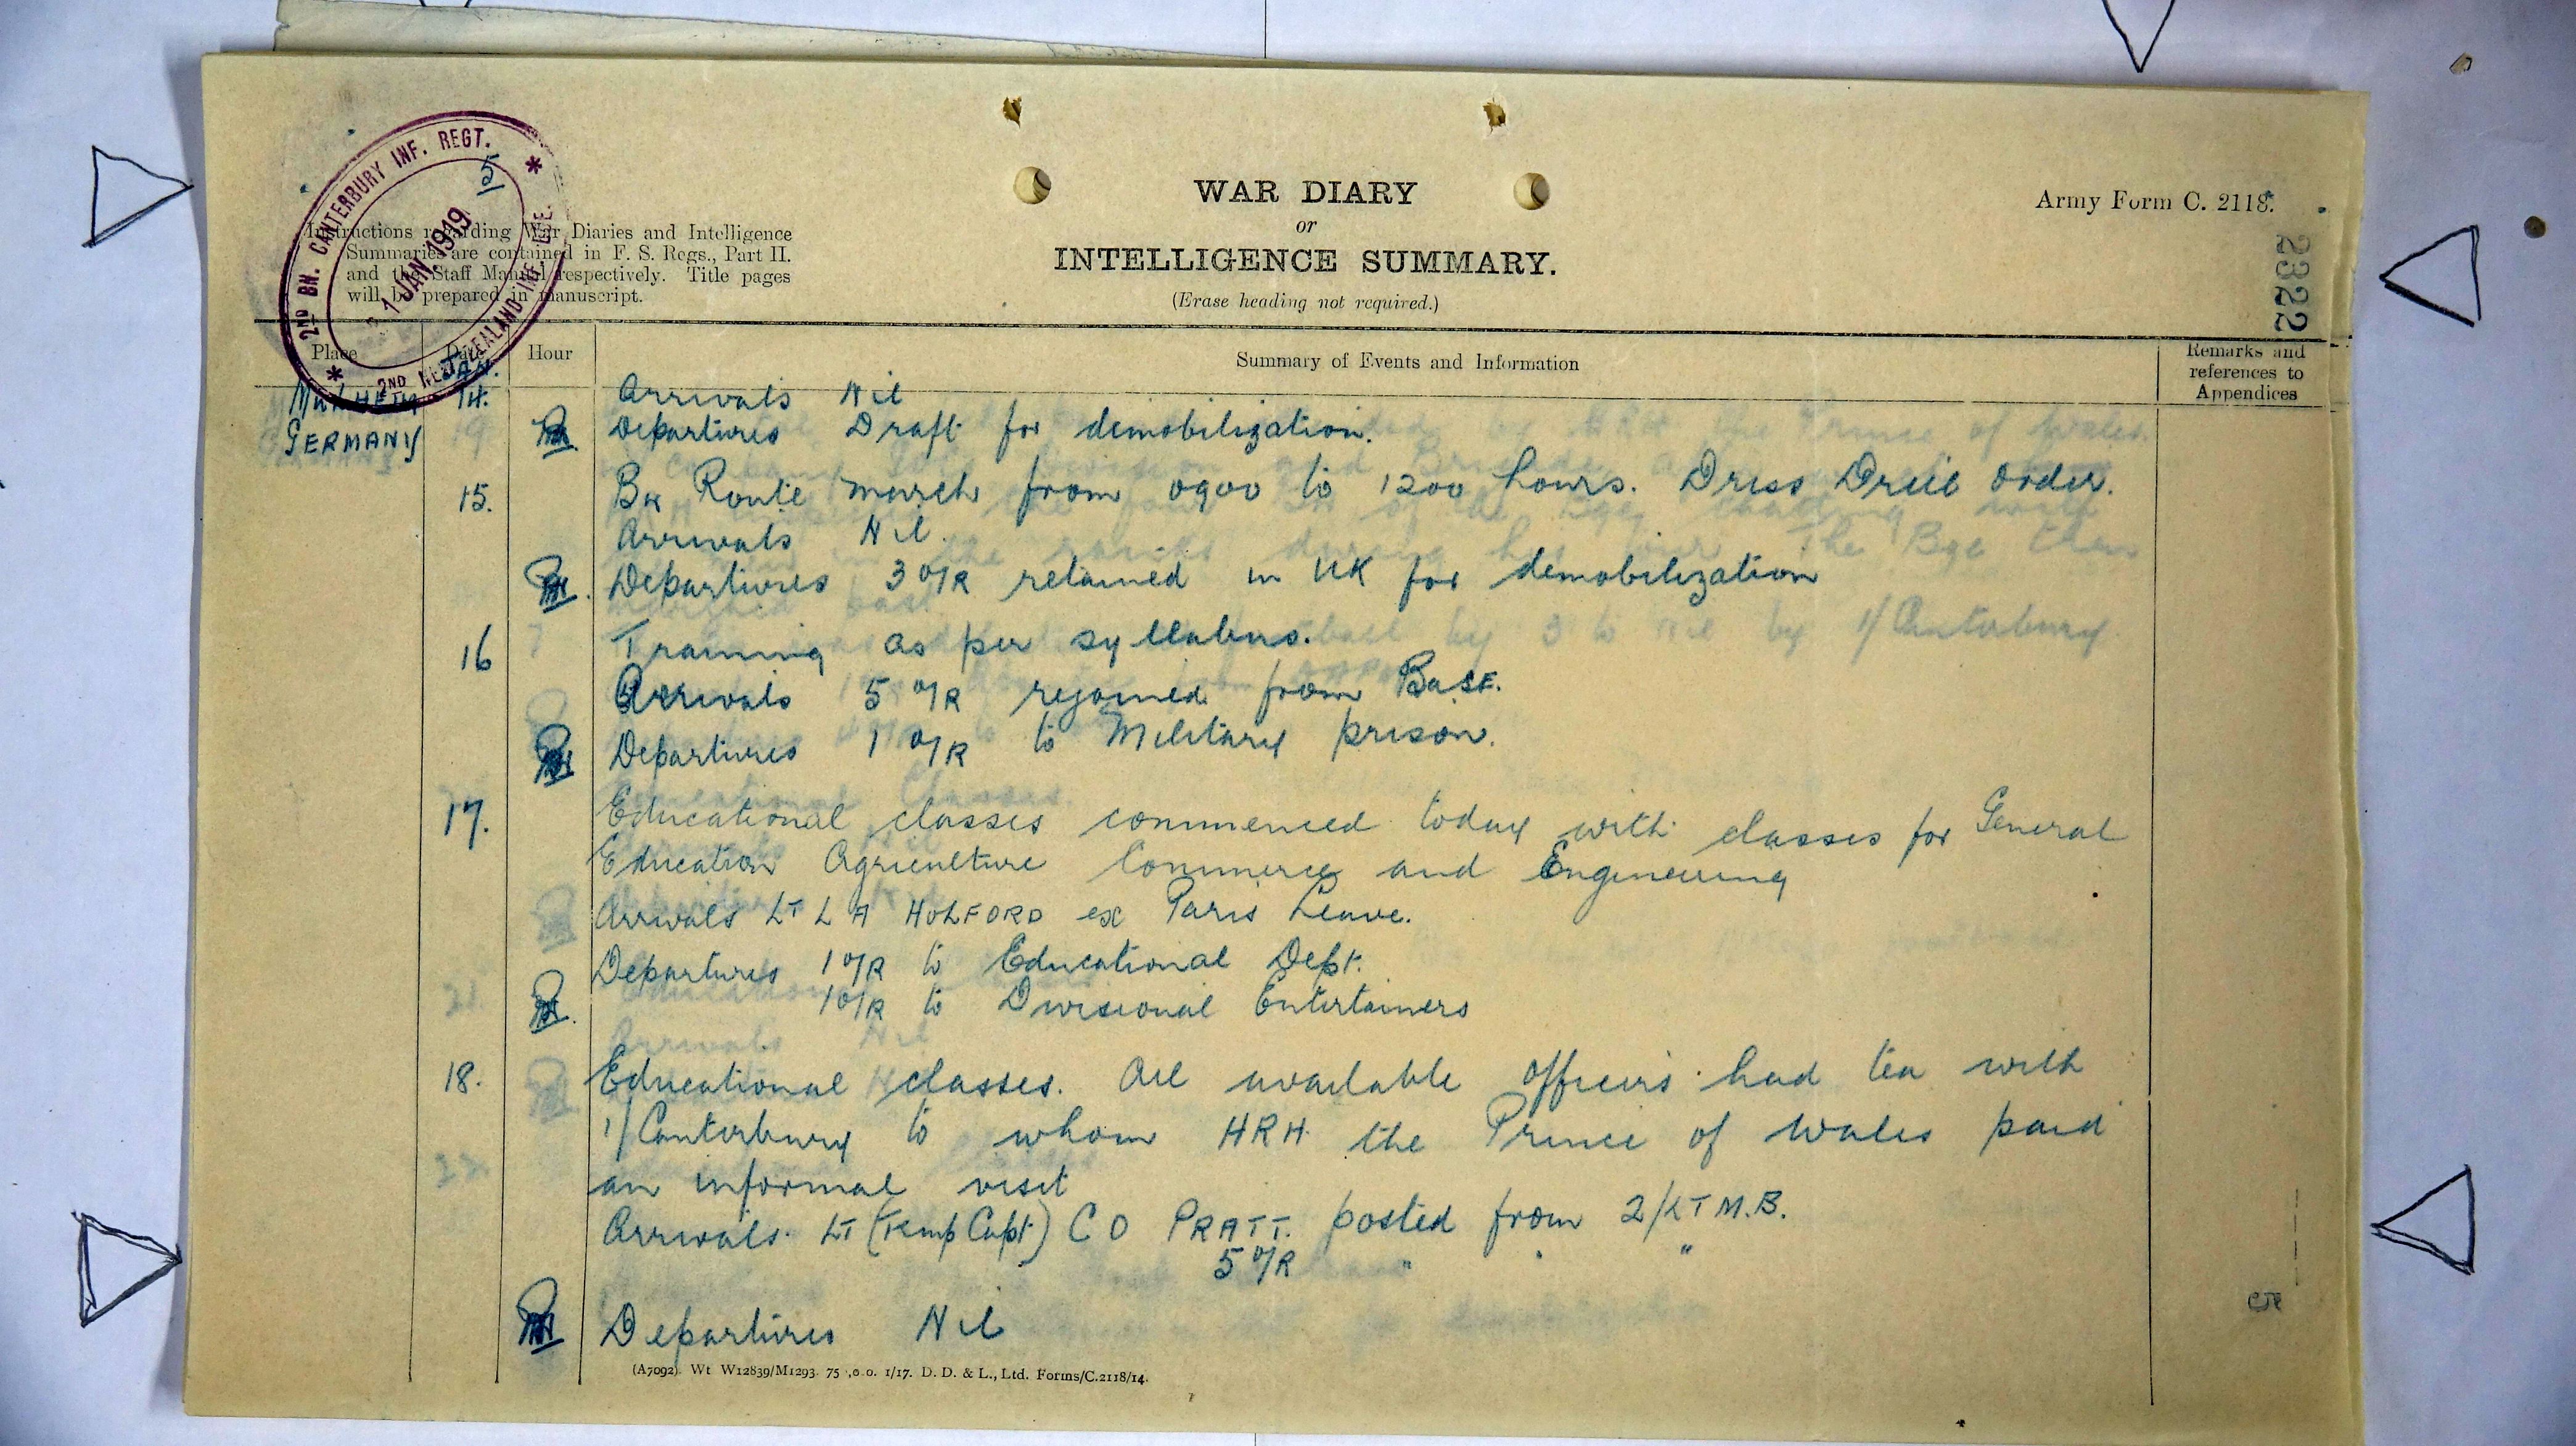 2ND BN. CANTERBURY INF. REGT.
2ND NEW ZEALAND INF. BDE.
31 JAN. 1919
5
WAR DIARY
or
INTELLIGENCE SUMMARY.
(Erase heading not required.)
Army Form C. 2118.
2322
Instructions regarding War Diaries and Intelligence
Summaries are contained in F. S. Regs., Part II.
and the Staff Manual respectively. Title pages
will be prepared in manuscript.
Place Date Hour Summary of Events and Information Remarks and references to Appendices
JAN.
MULHEIM 14. Arrivals Nil
GERMANY Departures Draft for demobilization.
15. Bn Route march from 0900 to 1200 hours. Dress Drill order.
Arrivals Nil.
Departures 3 O/R retained in UK for demobilization
16 Training as per syllabus.
Arrivals 5 O/R rejoined from Base.
Departures 1 O/R to Military prison.
17. Educational classes commenced today with classes for General
Education Agriculture Commerce and Engineering
Arrivals LT L A HOLFORD ex Paris Leave.
Departures 1 O/R to Educational Dept.
1 O/R to Divisional Entertainers
18. Educational classes. All available officers had tea with
1/Canterbury to whom HRH the Prince of Wales paid
an informal visit
Arrivals. LT (Temp Capt) C O PRATT. posted from 2/LT M.B.
5 O/R " " "
Departures Nil
(A7092) Wt W12839/M1293 75 ,0.0. 1/17. D. D. & L., Ltd. Forms/C.2118/14.